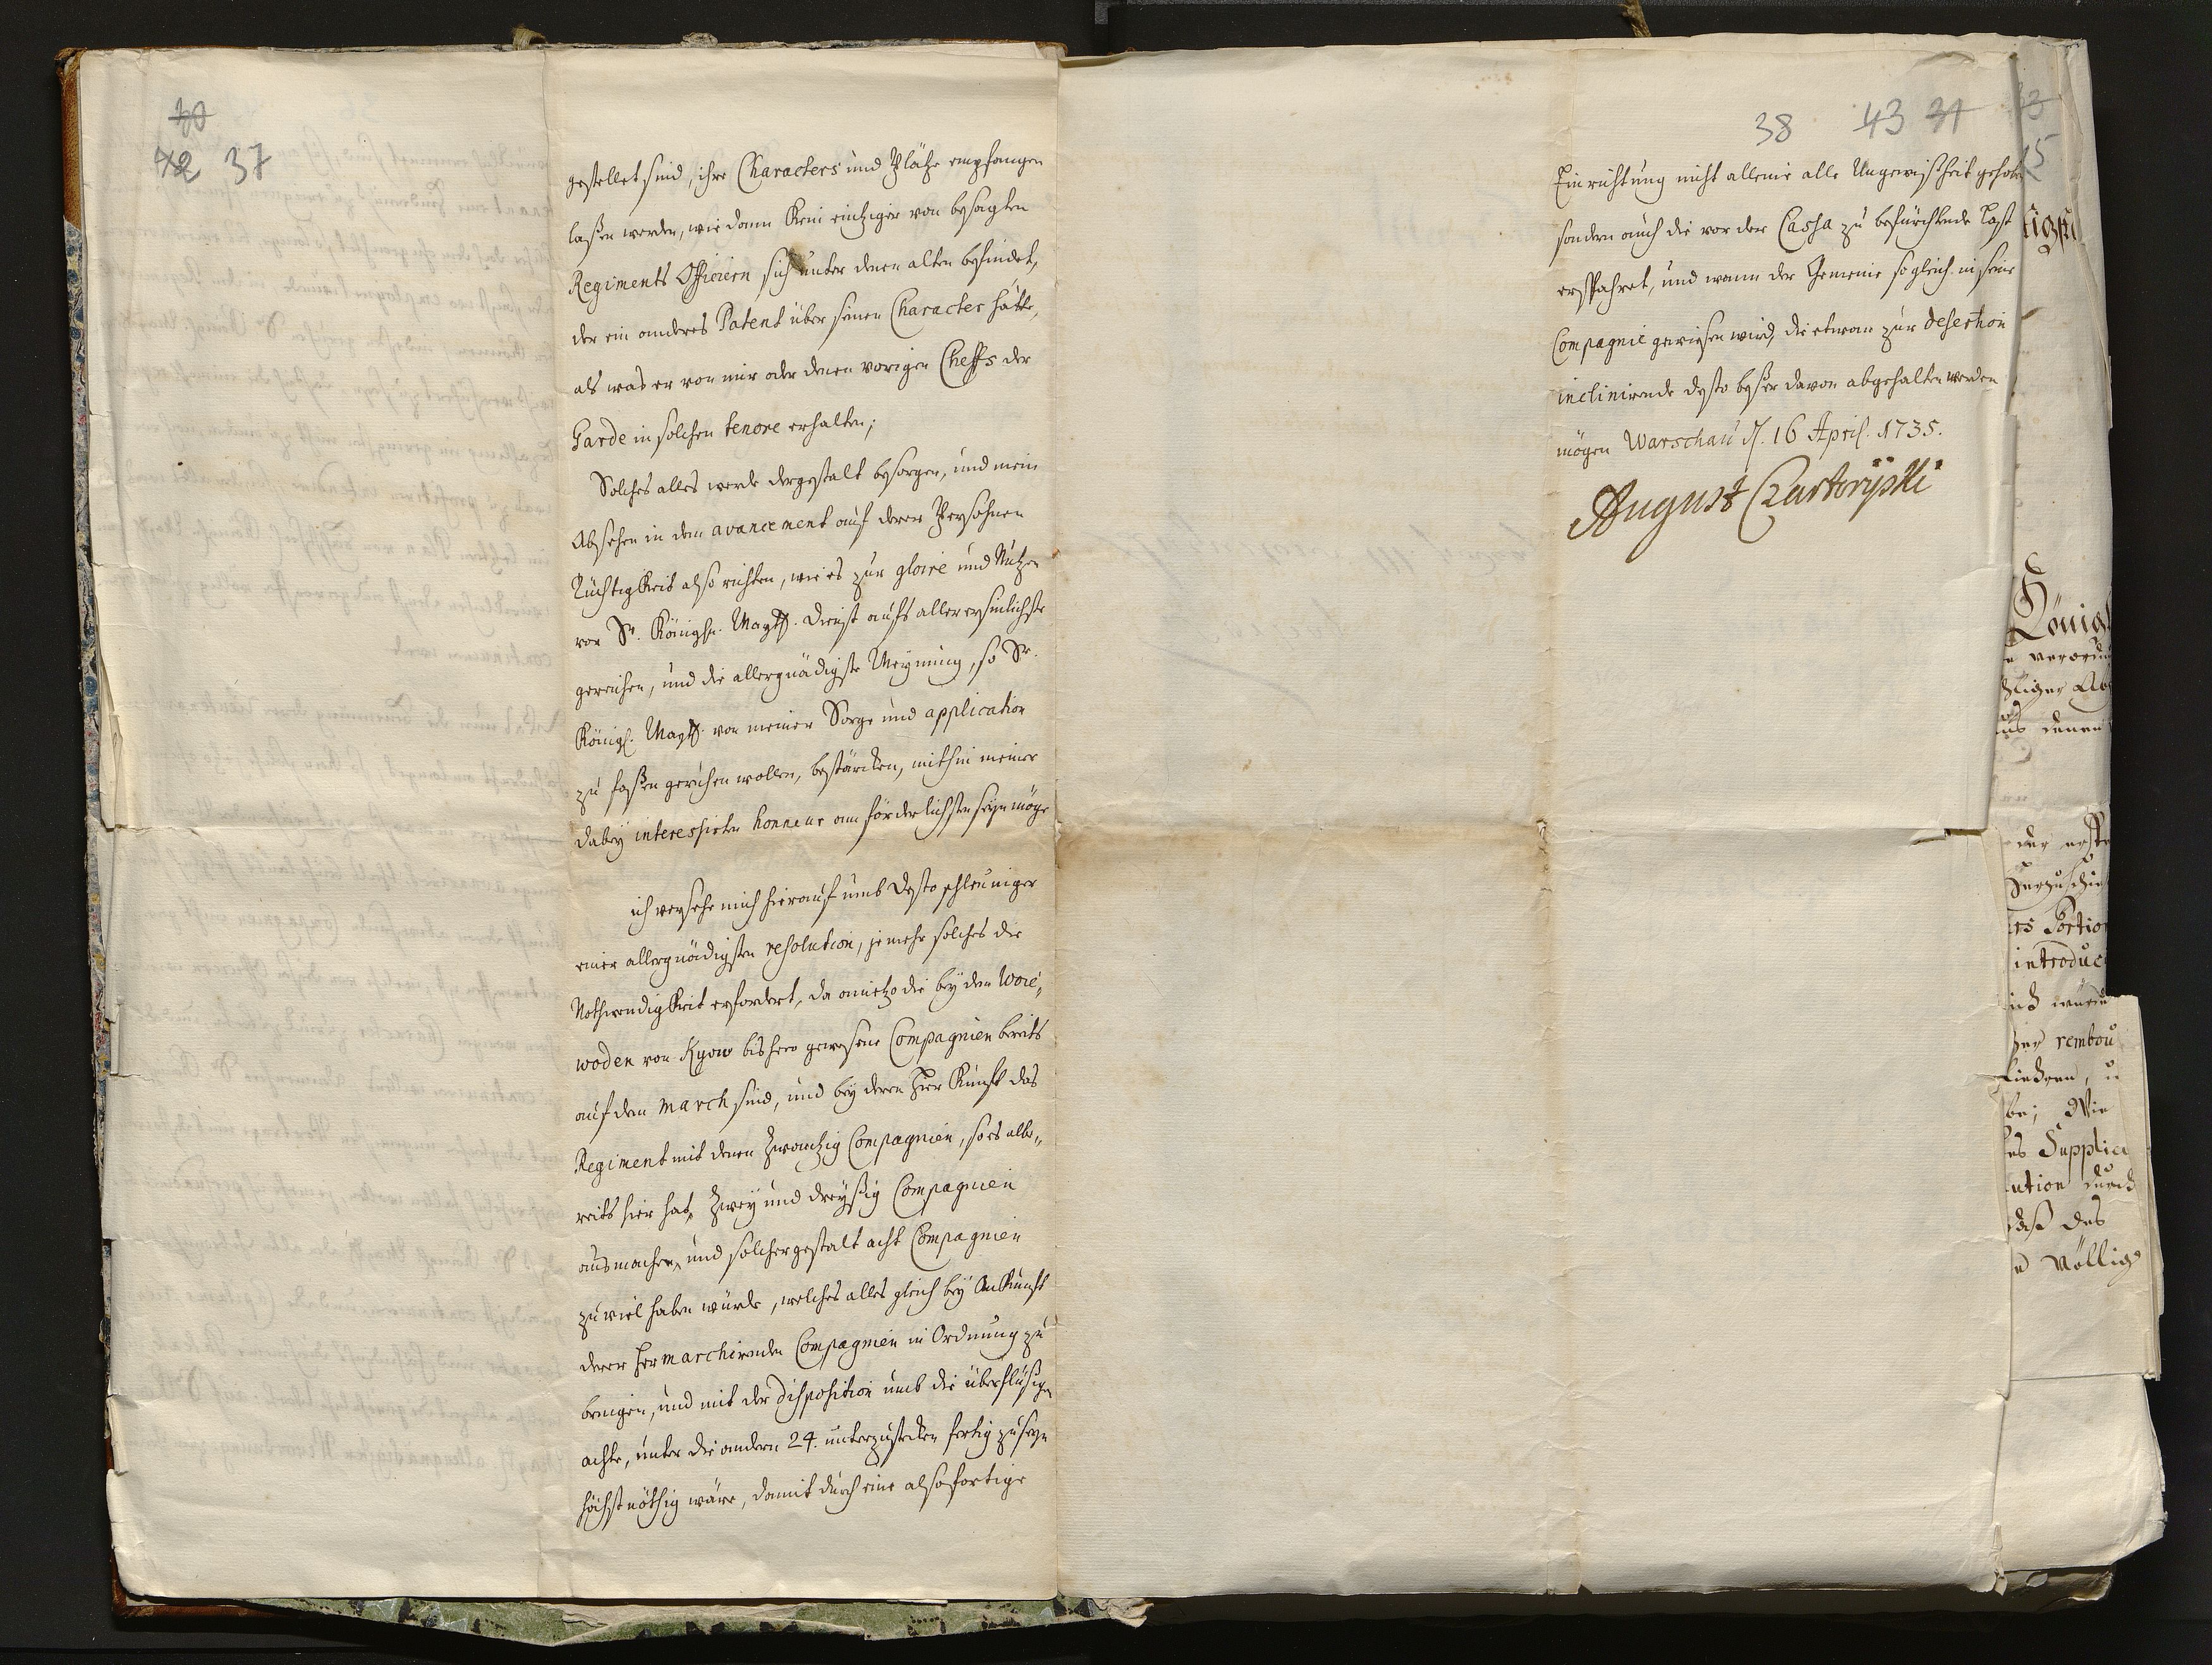 30
42 37
gestellet sind, ihre Characters und Plätze empfangen
laßen werden, wie dann kein eintziger von besagten
Regiments Officiern sich unter denen alten befindet,
der ein anderes Patent über seinen Character hätte,
als was er von mir oder denen vorigen Cheffs der
Garde in solchen tenore erhalten;
Solches alles werde dergestalt besorgen, und mein
Absehen in dem avancement auf derer Persohnen
Tüchtigkeit also richten, wie es zur gloire und Nutzen
vor Sr. Königln. Maytt. Dienst aufs allerersinlichste
gereichen, und die allergnädigste Meynung, so Sr.
Königl. Maytt. von meiner Sorge und application
zu faßen geruhen wollen, bestärcken, mithin meiner
dabey interessirten honneur am förderlichsten seyn möge
ich versehe mich hierauf umb desto schleuniger
einer allergnädigsten resolution, jemehr solches die
Nothwendigkeit erfordert, da anietzo die bey dem Woie„
woden von Kyow bishero gewesene Compagnien bereits
auf dem march sind, und bey deren Her Kunft das
Regiment mit denen Zwantzig Compagnien, so es alle„
reits hier hat, Zwey und dreyßig Compagnien
ausmachen, und solchergestalt acht Compagnien
zu viel haben würde, welches alles gleich bey Ankunft
derer Her marchirenden Compagnien in Ordnung zu
bringen, und mit der disposition umb die überflüßigen
achte, unter die andern 24. unterzustecken fertig zu seyn
höchst nöthig wäre, damit durch eine alsofortige
38 43 31
Einrichtung nicht alleine alle Ungewißheit gehoben
sondern auch die vor der Cassa zu befürchtende Last
erspahret, und wann der Gemeine sogleich in seine
Compagnie gewiesen wird, die etwan zur desertion
inclinirende desto beßer davon abgehalten werden
mögen Warschau d. 16 April. 1735.
August Czartoryski
König
es Portion
introduc
rembou
be; Wie
es Supplica
ution durch
daß das
völlig